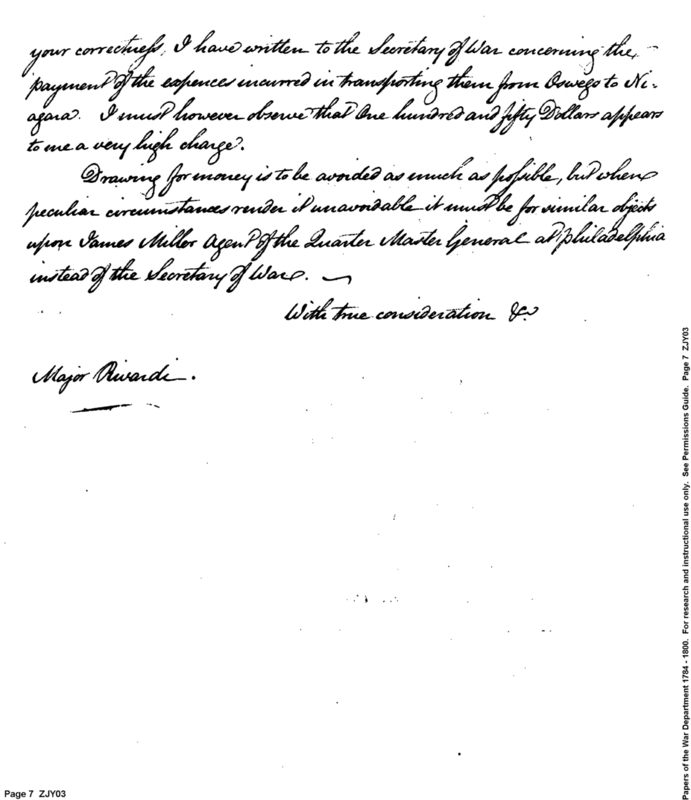 your correctness, I have written to the Secretary of War concerning the
payment of the expences incurred in transporting them from Oswego to Ni-
agara. I must however observe that One hundred and fifty Dollars appears
to me a very high charge.
Drawing for money is to be avoided as much as possible, but when
peculiar circumstances render it unavoidable it must be for similar objects
upon James Miller Agent of the Quarter Master General at Philadelphia
instead of the Secretary of War.
With true consideration &c
Major Rivardi.
Papers of the War Department 1784 - 1800. For research and instructional use only. See Permissions Guide. Page 7 ZJY03
Page 7 ZJY03